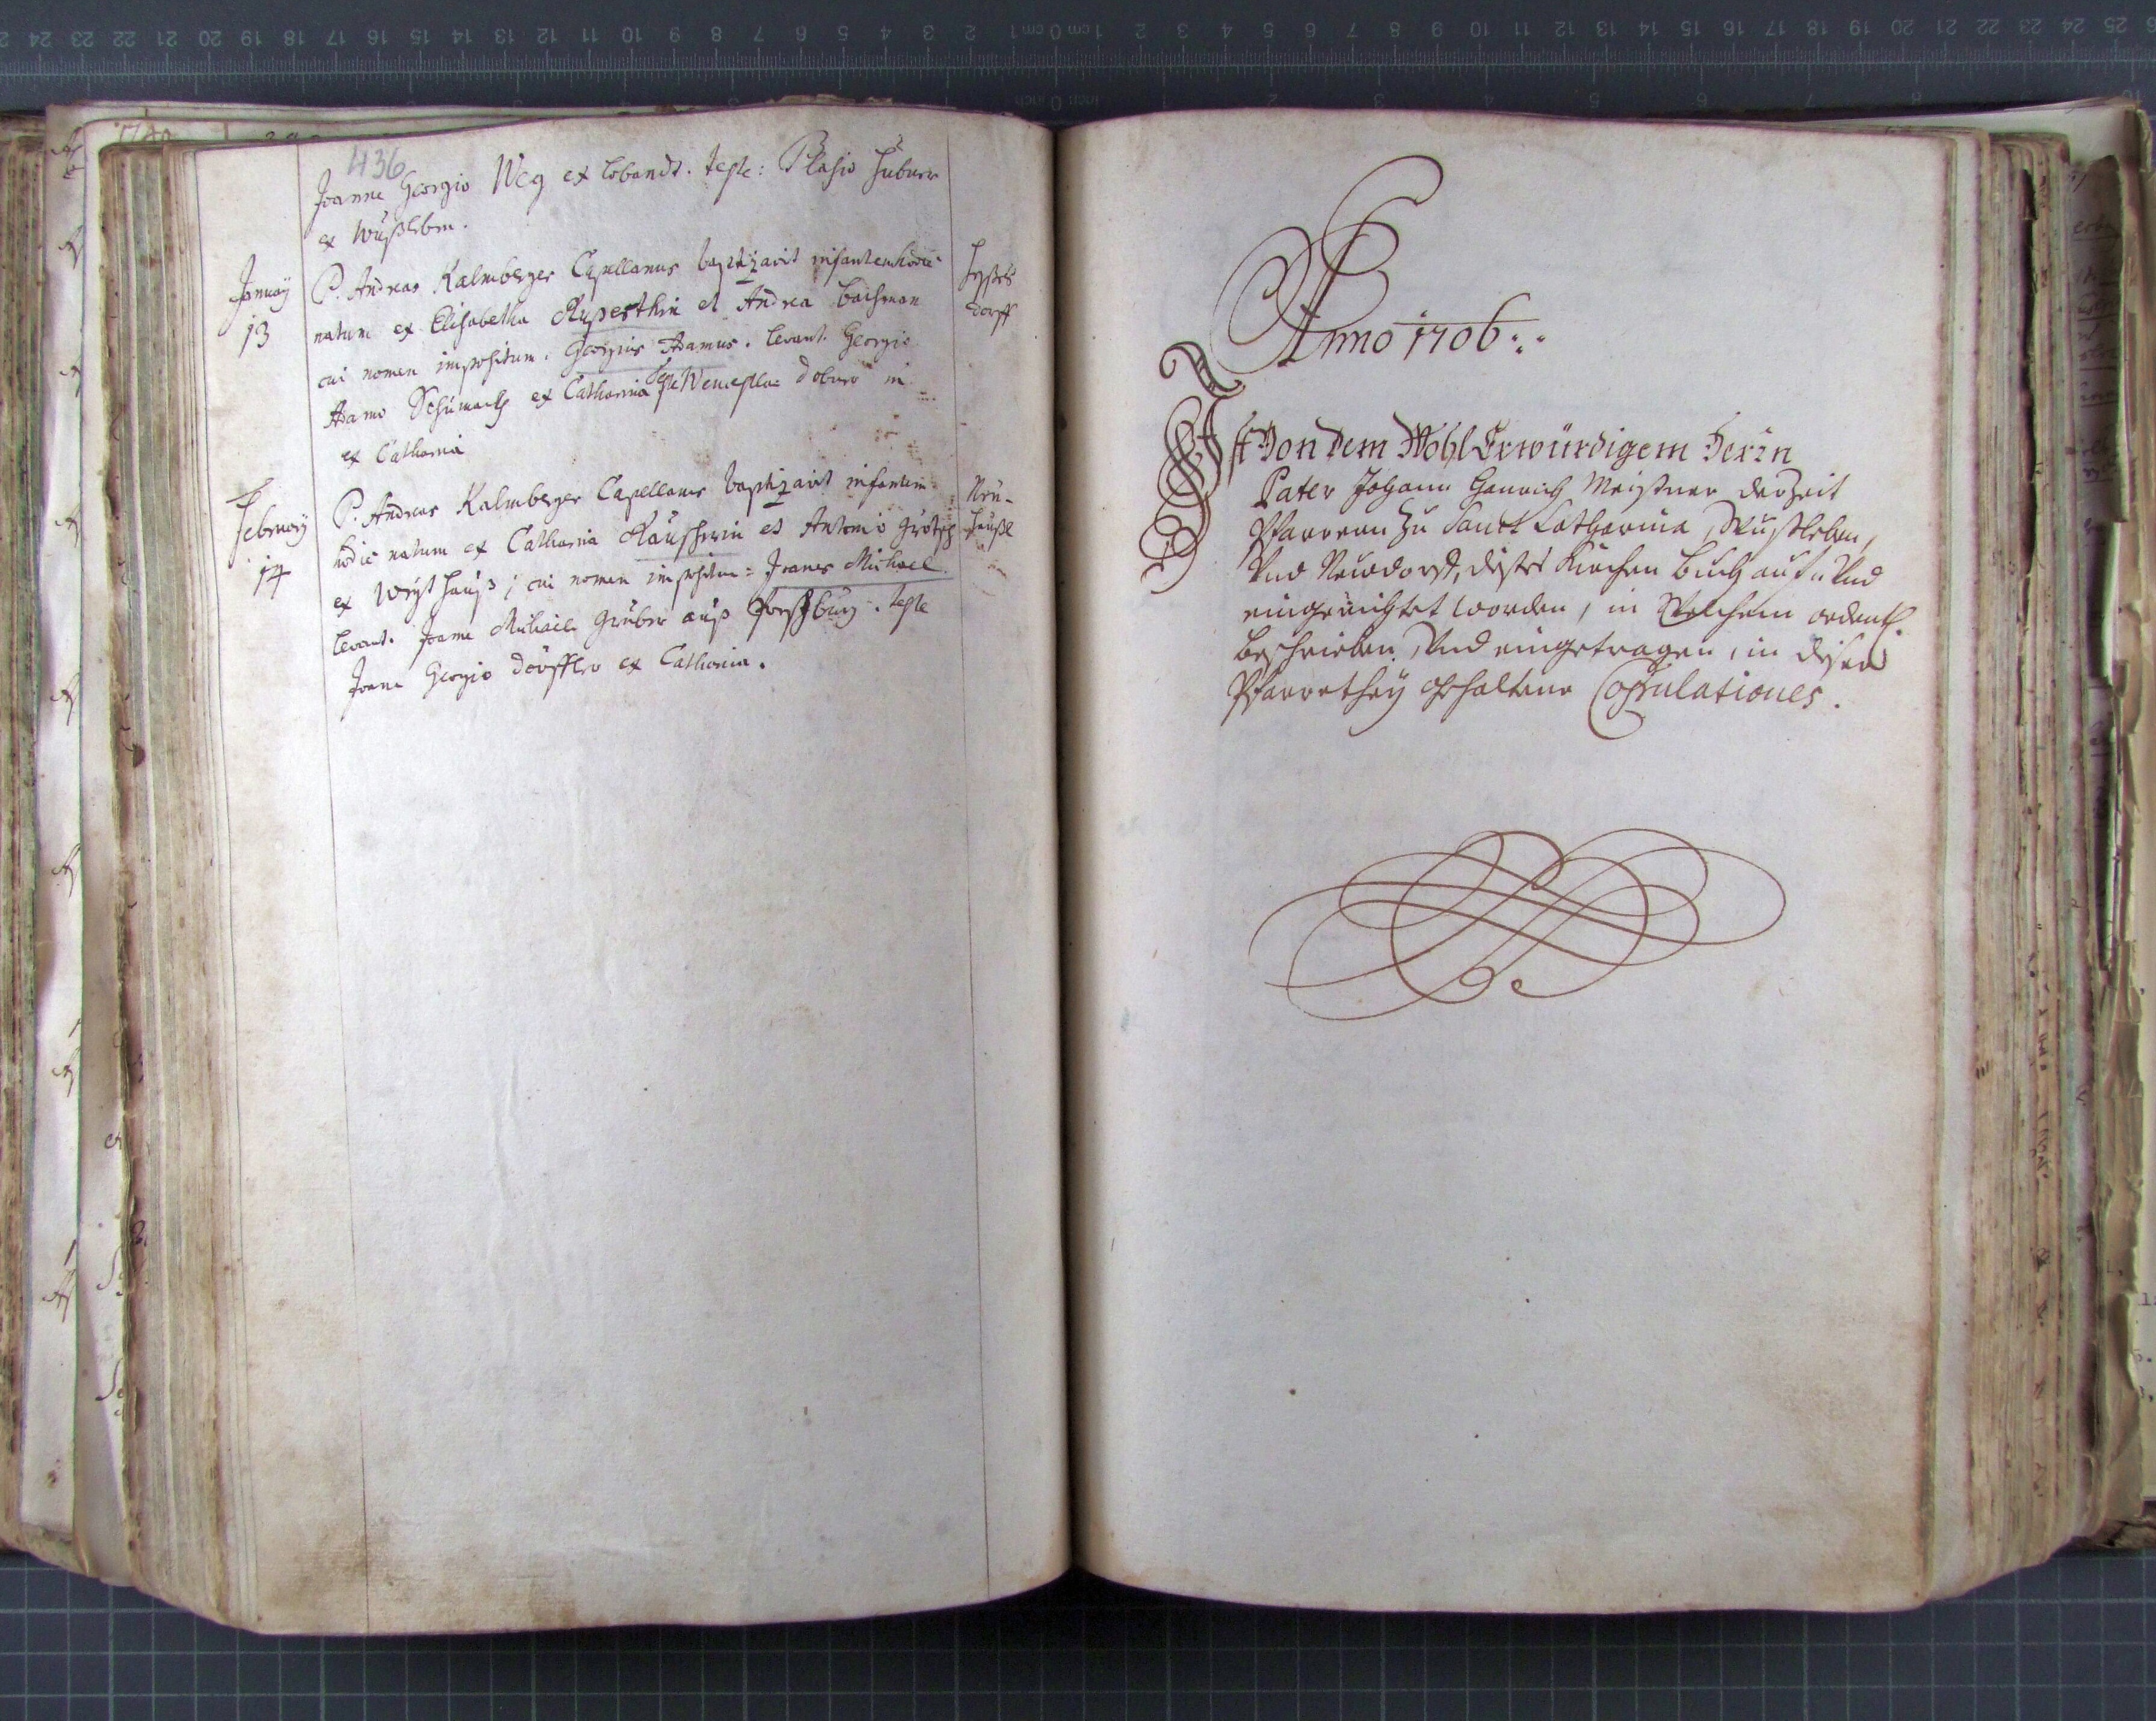 436
Joanne Georgio Weg ex Lobendt. teste: Blasio Hubner
ex Wusleben.
January
13
P. Andreas Kalmberger Capellanus baptizavit infantem hodie
natum ex Elisabetha Ruperthin et Andrea Bachman
cui nomen impositum. Georgius Adamus. levant. Georgio
Adamo Schumach ex Catharina teste Wenceslao Dobner in
ex Catharina
February
14
P. Andreas Kalmberger Capellanus baptizavit infantem
hodie natum ex Catharina et Antonio
ex ; cui nomen impositum: Joanes Michael
levant. Joane Michaele Gruber auß . teste
Joane Georgio Dörffler ex Catharina.
dorff
Neu-
häußl
Anno 1706
Ist Von dem WohlErwürdigem Herrn
Pater Johann Henrich Meißner der Zeit
Pfarrern Zu Sanct Catharina, Wußleben,
Und Neudorff, dises Kirchen Buch auf: Und
eingerichtet worden, in Welchem ordentl.
beschrieben, Und eingetragen, in diser
Pfarrethey gehaltene Copulationes.